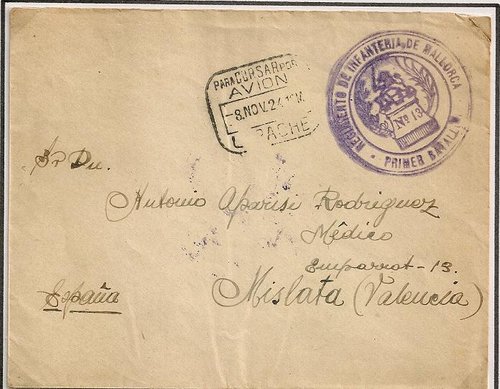 PARA CURSAR POR
AVION
-8.NOV.24.1
L RACHE
REGIMIENTO DE INFANTERIA DE MALLORCA
Nº 13
· PRIMER BATALLON
Sr Dn.
Antonio Aparisi Rodriguez
Médico
Emparrat-13.
Mislata (Valencia)
España